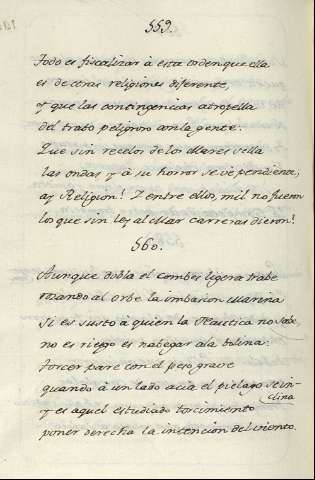 559.
Todo es fiscalizar à esta orden que ella
es de otras religiones diferente,
y que las contingencias atropella
del trato peligroso con la gente.
Que sin recelos de los Mares sella
las ondas y à su horror se vé pendiente,
ay Religion! Y entre ellos, mil no fueron
los que sin ley al Mar carreras dieron!
560.
Aunque dobla el combes ligera trabe
rozando al orbe la imbasion Marina
Si es susto à quien la Practica no sabe,
no es riesgo es nabegar a la bolina.
Torcer pare con el peso grave
quando à un lado acia el pielago se inclina
y es aquel estudiado torcimiento
poner derecha la intencion del viento.